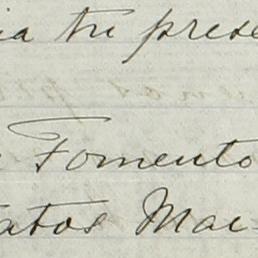 ia tu prese
Fomento
tatos Mac-